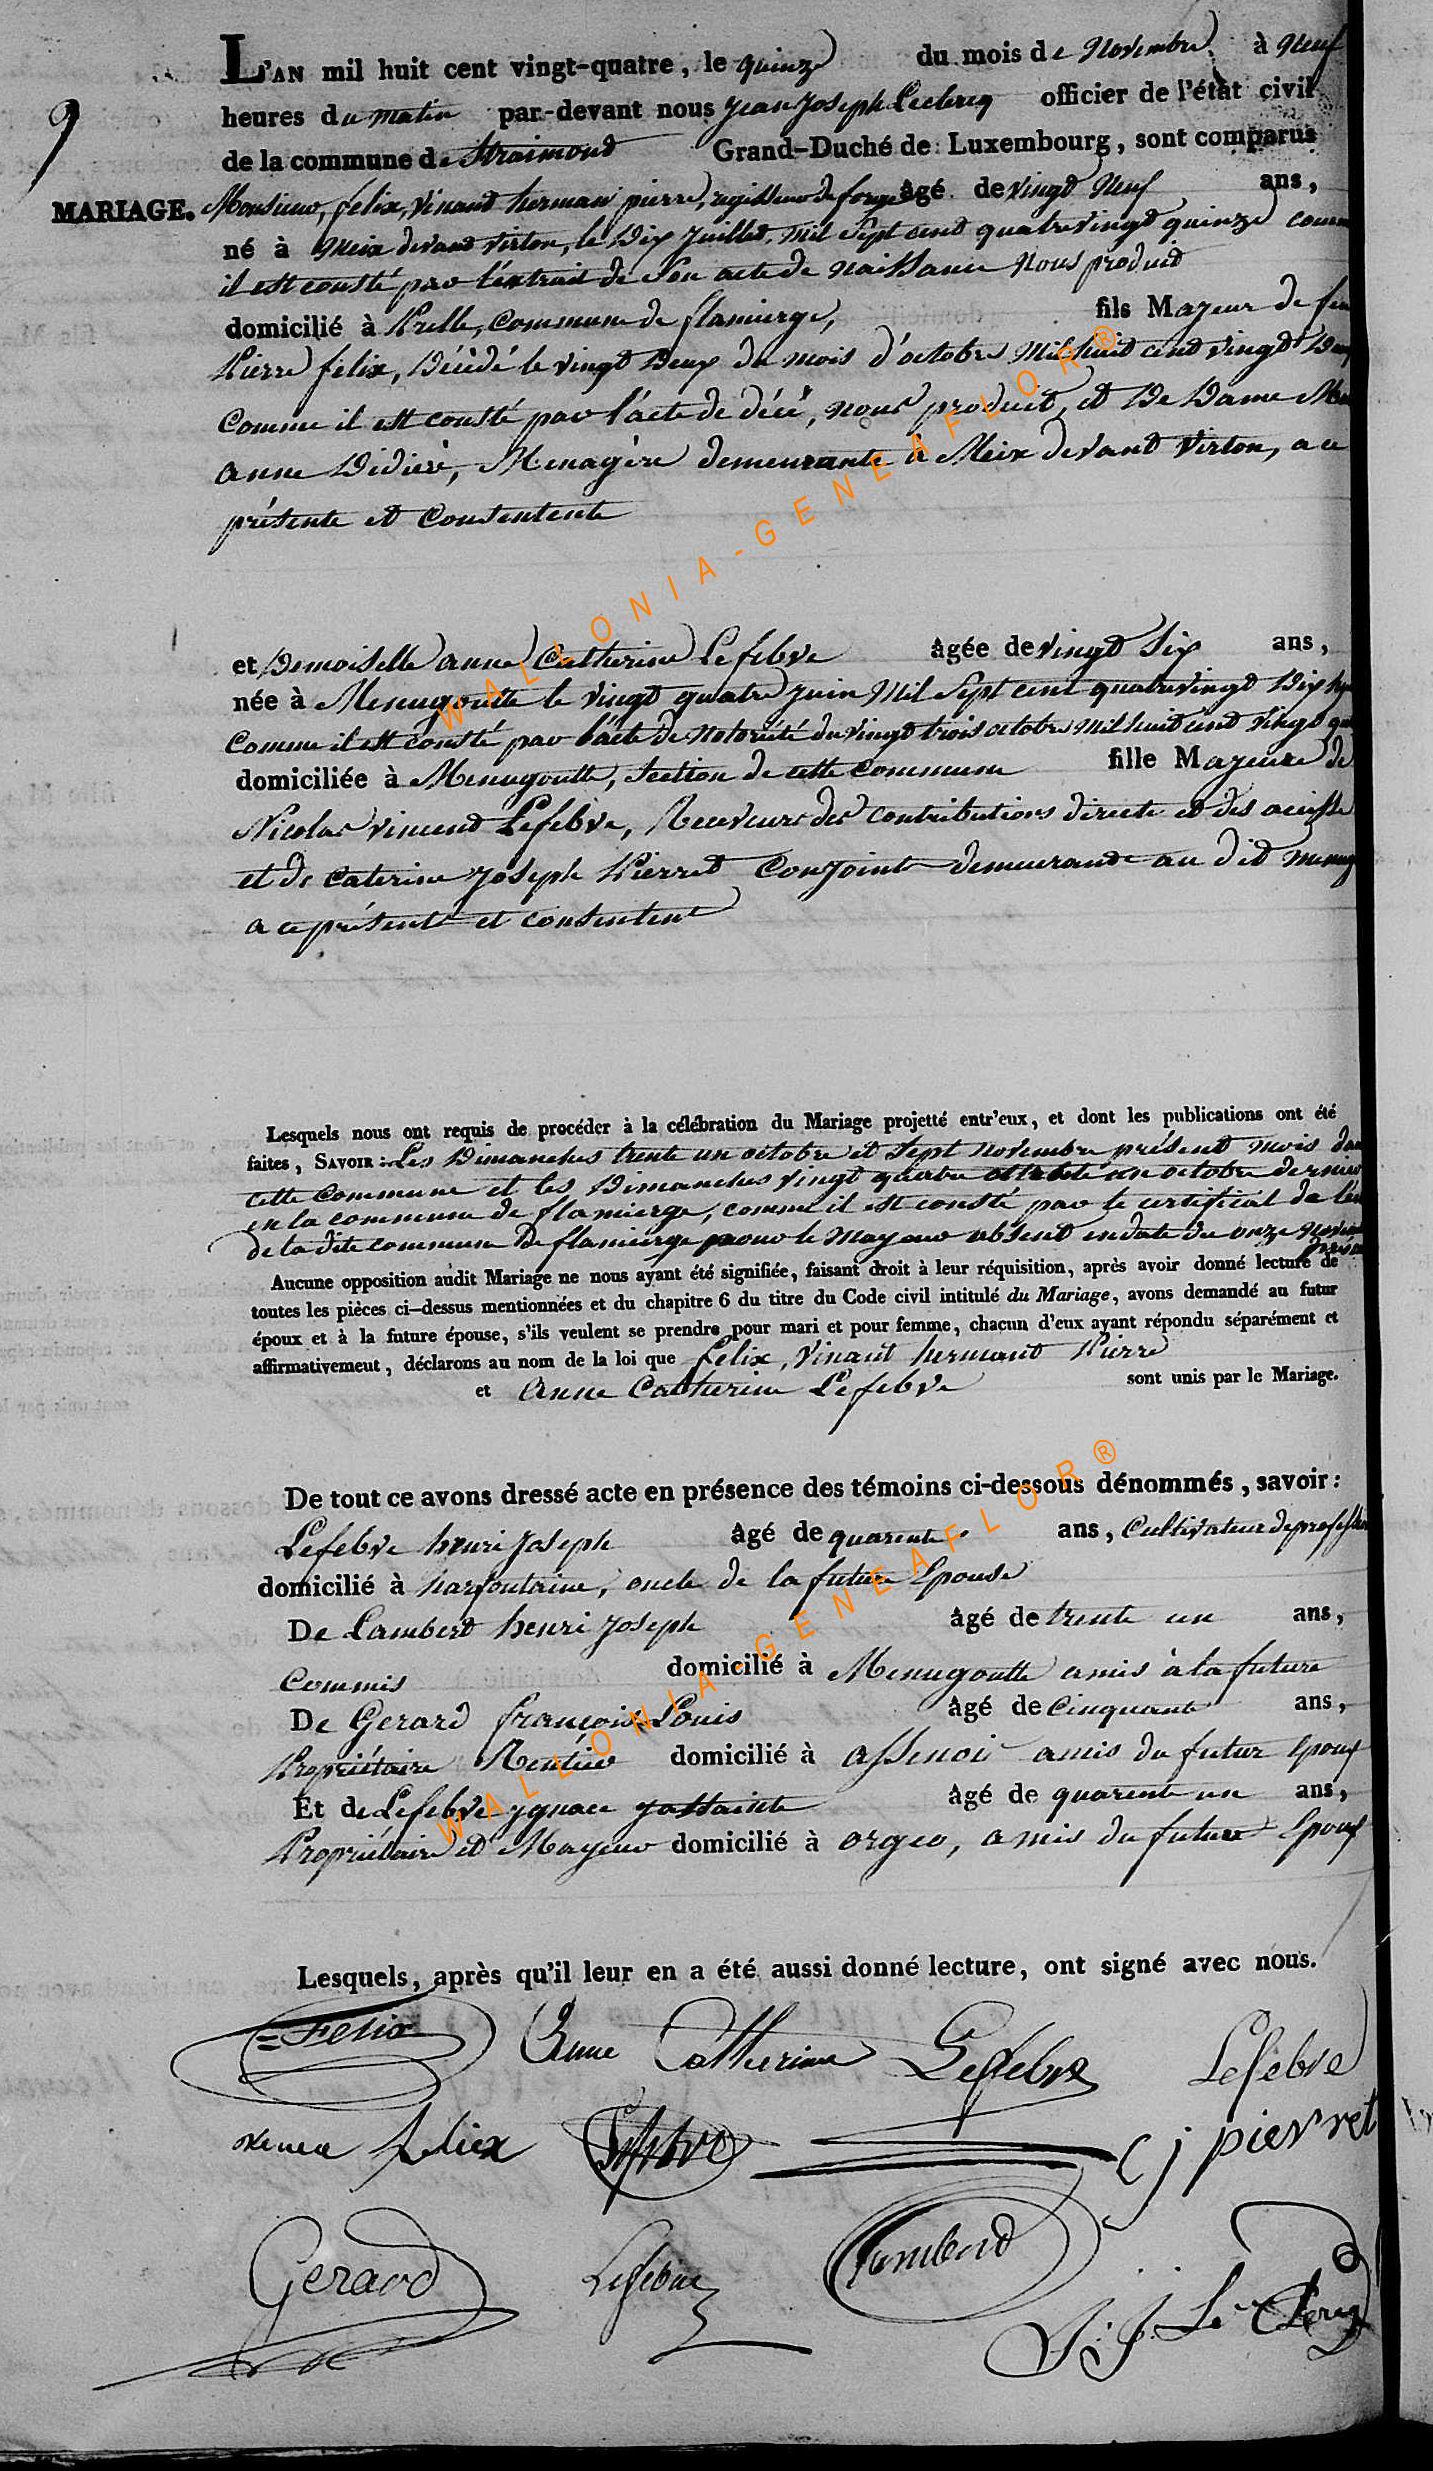 L'AN mil huit cent vingt-quatre, le quinze du mois de Novembre à Neuf
heures du matin par-devant nous jean joseph Leclercq officier de l'état civil
9
de la commune de Straimond Grand-Duché de Luxembourg, sont comparus
MARIAGE. Monsieur, felix, Vinand herman pierre, regisseur de forge âgé de vingt Neuf ans,
né à Meix devant virton, le Dix Juillet, mil Sept cent quatrevingt quinze
il est consté par l'extrait de Son acte de naissance Nous produit
domicilié à commune de flamierge, fils Majeur de feu
Pierre felix, Décédé le vingt Deux du mois d'octobre Mil huit cent vingt
Comme il est consté par l'acte de décé, nous produit, et De Dame
anne Didier, Menagère demeurante à Meix devant Virton, a ce
présente et Consentente
et Demoiselle anne Catherine Lefebve âgée de vingt Six ans,
née à Menugoutte le vingt quatre juin Mil Sept cent quatrevingt Dix
Comme il est consté par l'acte de Notoriété du vingt trois octobre Mil huit cent vingt
domiciliée à Menugoutte, Section de cette Commune fille Majeure de
Nicolas vincend Lefebve, Receveur des contributions directe et des
et de Caterine Joseph Pierret Conjoint demeurant au dit
a ce présent et consentent
Lesquels nous ont requis de procéder à la célébration du Mariage projetté entr'eux, et dont les publications ont été
faites, SAVOIR: Les Dimanches trente un octobre et Sept novembre présent mois
cette Commune et les Dimanches vingt quatre et trente un octobre dernier
en la commune de flamierge, comme il est consté par le certificat de
de la dite commune De flamierge pour le Mayeur absent en date du onze
Aucune opposition audit Mariage ne nous ayant été signifiée, faisant droit à leur réquisition, après avoir donné lecture de
toutes les pièces ci-dessus mentionnées et du chapitre 6 du titre du Code civil intitulé du Mariage, avons demandé au futur
époux et à la future épouse, s'ils veulent se prendre pour mari et pour femme, chacun d'eux ayant répondu séparément et
affirmativement, déclarons au nom de la loi que felix, Vinant hermant Pierre
et Anne Catherine Lefebve sont unis par le Mariage.
De tout ce avons dressé acte en présence des témoins ci-dessous dénommés, savoir:
Lefebve henri joseph âgé de quarente ans, Cultivateur de profession
domicilié à harfontaine, oncle de la future Epouse
De Lambert henri joseph âgé de trente un ans,
Commis domicilié à Menugoutte amis à la future
De Gerard françois Louis âgé de Cinquante ans,
Propriétaire Rentier domicilié à assenoi amis du futur Epoux
Et de Lefebve ygnace âgé de quarente un ans,
Propriétaire et Mayeur domicilié à orgeo, amis du future Epoux
Lesquels, après qu'il leur en a été aussi donné lecture, ont signé avec nous.
Felix Anne Catherine Lefebve Lefebve
felix Lefebve c j pierret
Gerard Lefebve Lambert
J. J. Le Clercq
WALLONIA-GENEAFLOR®
WALLONIA-GENEAFLOR®